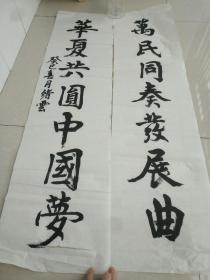 萬民同奏發展曲
華夏共圓中國夢
癸巳喜月绪雲